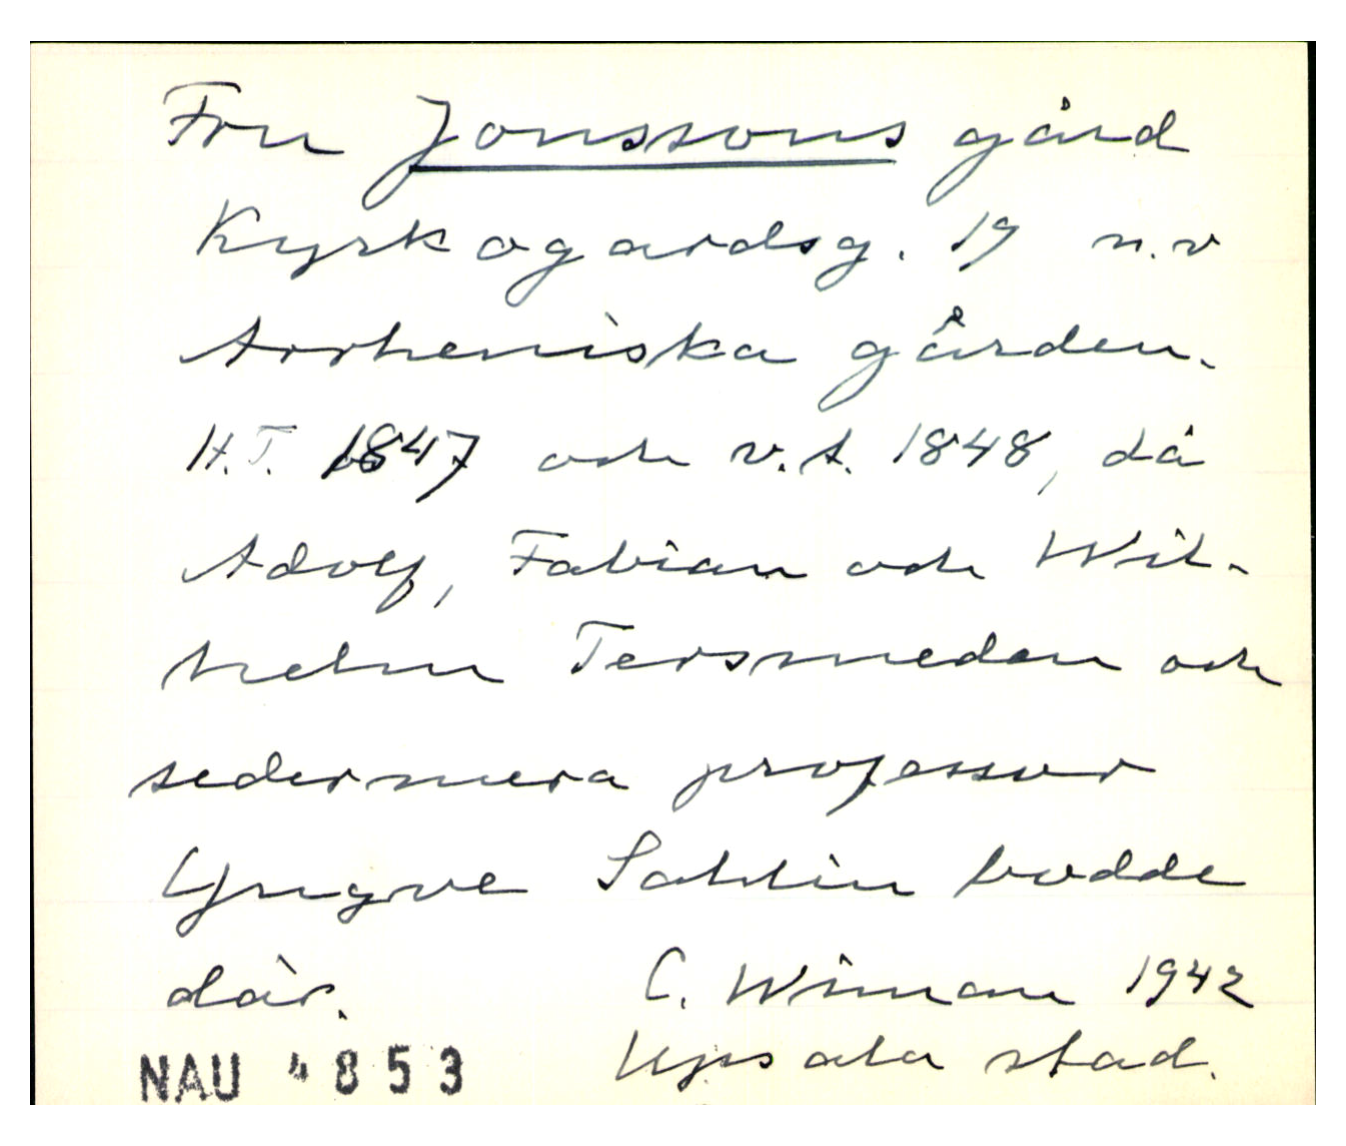 Fru Jonssons gård
Kyrkogardsg. 19 n.v
Arrheniska gården.
H.T. 1847 och v.t. 1848, då
Adolf, Fabian och Wil-
helm Tersmeden och
sedermera professor
Yngve Sahlin bodde
där. C. Wiman 1942
NAU 4853 Upsala stad.